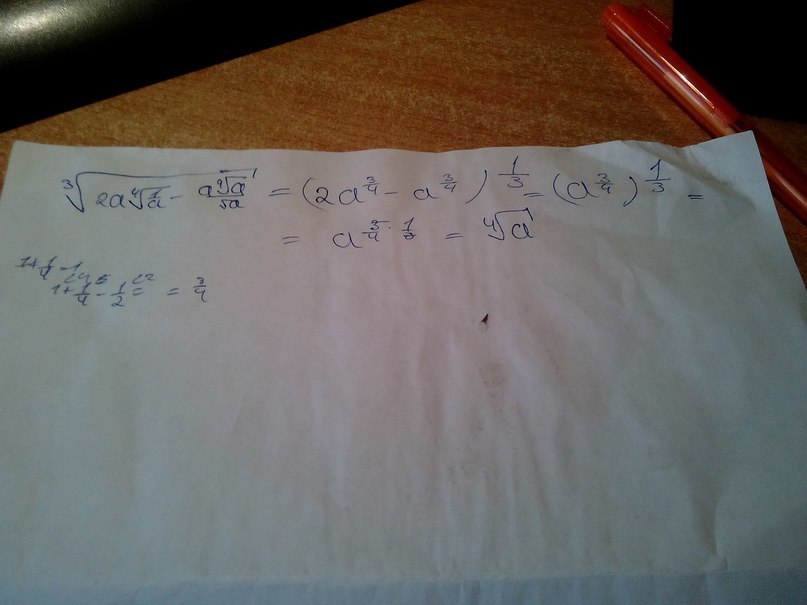 ∛(2a ∜(1/a) - a∜a/√a) = (2a^(3/4) - a^(3/4))^(1/3) = (a^(3/4))^(1/3) =
= a^(3/4 · 1/3) = ∜a
1+1/4-1
1+1/4 - 1/2 = = 3/4